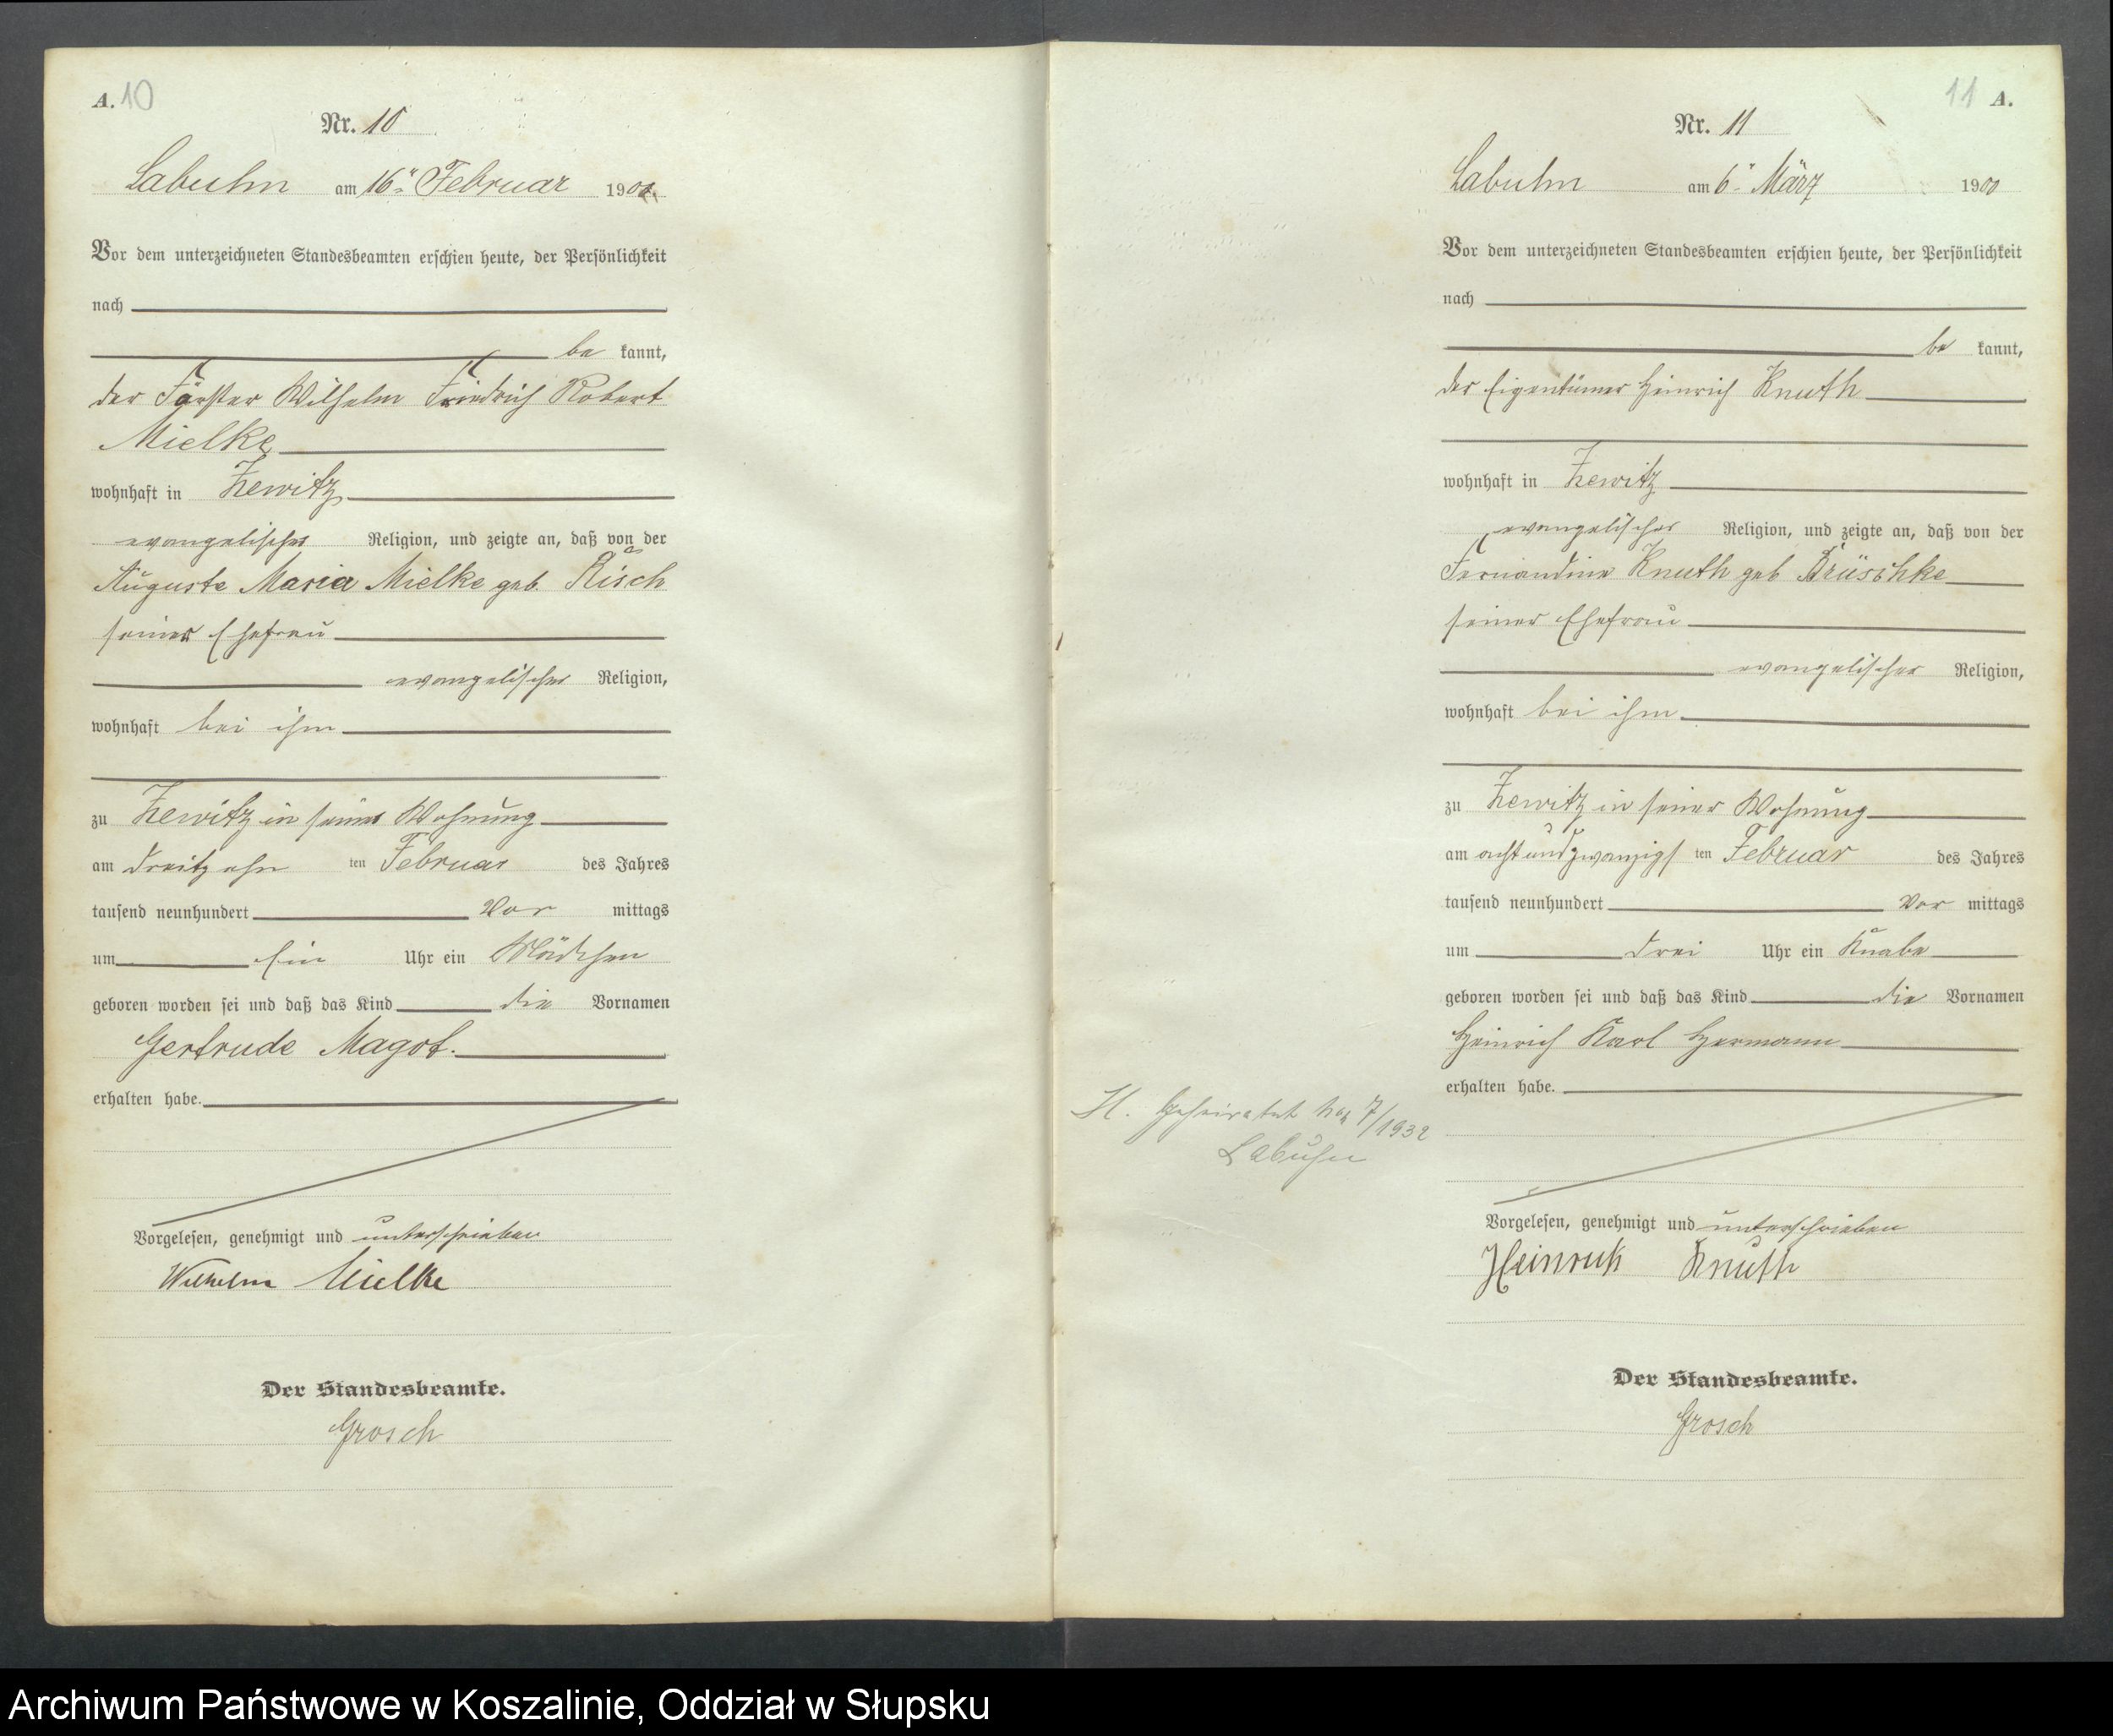 A. 10
Nr. 10
Labuhn am 16ten Februar 1900.
Vor dem unterzeichneten Standesbeamten erschien heute, der Persönlichkeit
nach
be kannt,
der Förster Wilhelm Friedrich Robert
Mielke
wohnhaft in Zewitz
evangelischer Religion, und zeigte an, daß von der
Auguste Maria Mielke geb. Risch
seiner Ehefrau
evangelischer Religion,
wohnhaft bei ihm
zu Zewitz in seiner Wohnung
am dreitzehn ten Februar des Jahres
tausend neunhundert Vor mittags
um Ein Uhr ein Mädchen
geboren worden sei und daß das Kind die Vornamen
Gertrude Magot.
erhalten habe.
Vorgelesen, genehmigt und unterschrieben
Wilhelm Mielke
Der Standesbeamte.
Grosch
11 A.
Nr. 11
Labuhn am 6ten März 1900
Vor dem unterzeichneten Standesbeamten erschien heute, der Persönlichkeit
nach
be kannt,
der Eigentümer Heinrich Knuth
wohnhaft in Zewitz
evangelischer Religion, und zeigte an, daß von der
Fernandine Knuth geb Drüschke
seiner Ehefrau
evangelischer Religion,
wohnhaft bei ihm
zu Zewitz in seiner Wohnung
am acht und zwanzigs ten Februar des Jahres
tausend neunhundert Vor mittags
um drei Uhr ein Knabe
geboren worden sei und daß das Kind die Vornamen
Heinrich Karl Hermann
erhalten habe.
H. Geheiratet No 7/1932
Labuhn
Vorgelesen, genehmigt und unterschrieben
Heinrich Knuth
Der Standesbeamte.
Grosch
Archiwum Państwowe w Koszalinie, Oddział w Słupsku